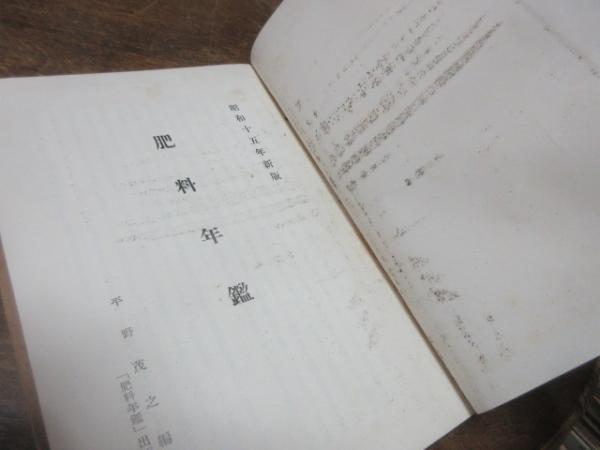 昭和十五年新版
肥料年鑑
平野茂之編
「肥料年鑑」出